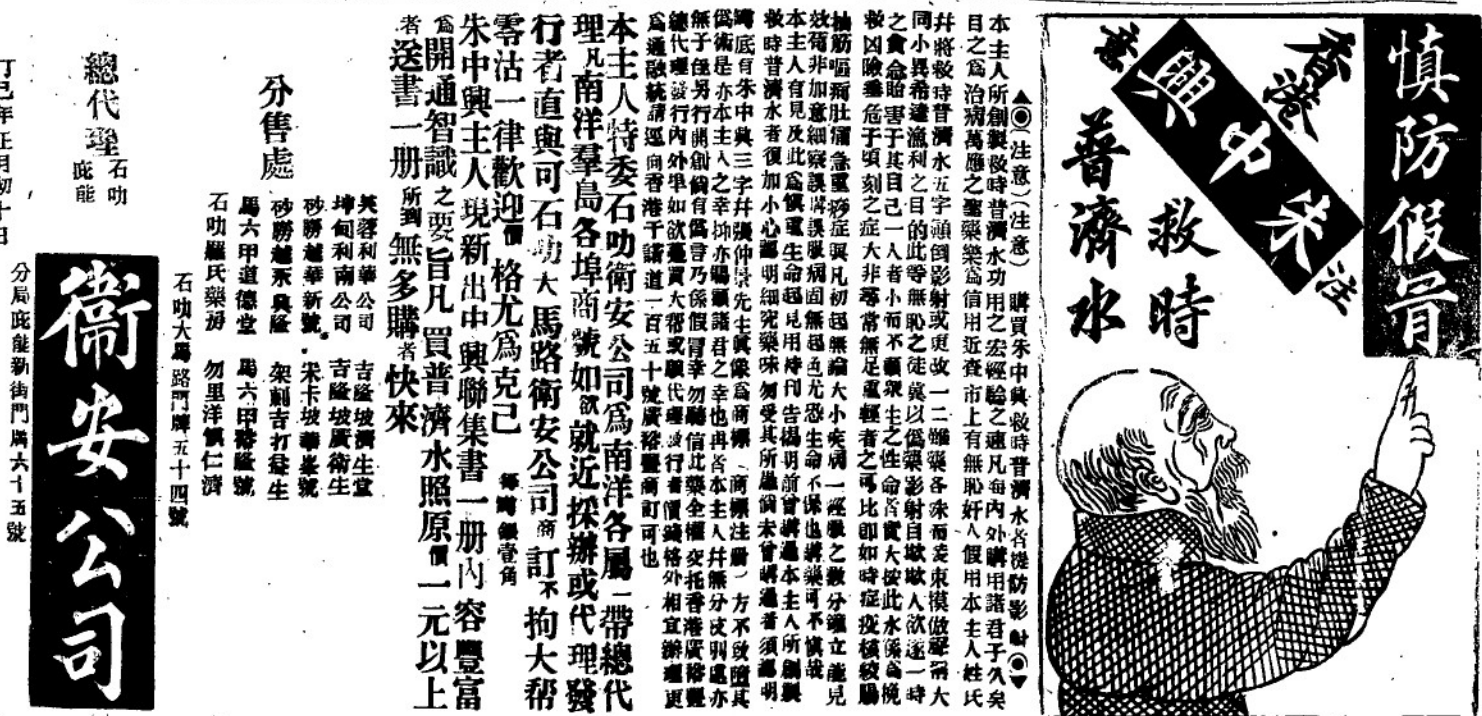 慎防假冒
香港
朱中興
注意
救時
普濟水
▲◉(注意)(注意) 購買朱中興救時普濟水者提防影射◉▼
本主人所創製救時普濟水功用之宏經驗之速凡每內外購用諸君子久矣
目之爲治病萬應之聖藥樂爲信用近查市上有無恥奸人假用本主人姓氏
幷將救時普濟水五字顚倒影射或更改一二雖藥各殊而妄東摸倣聲稱大
同小異希達漁利之目的此等無恥之徒冀以僞藥影射自欺欺人欲遂一時
之貪念貽害于其自己一人者小而不顧衆生之性命者實大按此水係爲挽
救凶險垂危于頃刻之症大非尋常無足重輕者之可比卽如時症疫核絞腸
抽筋嘔瀉肚痛急重痧症與凡初起無論大小疾病一經服之數分鐘立能見
效苟非加意細察誤購誤服病固無起色尤恐生命不保也購藥可不慎哉
本主人有見及此爲慎重生命起見用特刊告揭明前曾購過本主人所創製
救時普濟水者復加小心認明細究藥味勿受其所愚倘未曾購過者須認明
樽底有朱中興三字幷張仲景先生眞像爲商標(商標注册)方不致墮其
僞術是亦本主人之幸抑亦賜顧諸君之幸也再者本主人幷無分支別處亦
無子侄另行開創倘有爲言乃係假冒幸勿聽信此藥全權交托香港廣裕豐
總代理發行內外埠如欲躉買大帮或願代理發行者價錢格外相宜辦理更
爲通融統請逕向香港干諾道一百五十號廣裕豐商訂可也
本主人特委石叻衛安公司爲南洋各屬一帶總代
理凡南洋羣島各埠商號如欲就近採辦或代理發
行者直與可石叻大馬路衛安公司商訂不拘大帮
零沽一律歡迎價格尤爲克己 每樽銀壹角
朱中興主人現新出中興聯集書一册內容豐富
爲開通智識之要旨凡買普濟水照原價一元以上
者送書一册所到無多購者快來
分售處
芙蓉利華公司 吉隆坡濟生堂
坤甸利南公司 吉隆坡廣衛生
砂勝越華新號 宋卡坡華峯號
砂勝越永興隆 架剌吉打益生
馬六甲道德堂 馬六甲裕隆號
石叻羅氏藥房 勿里洋慎仁濟
總代理
石叻
庇能
石叻大馬路門牌五十四號
衞安公司
分局庇能新街門牌六十五號
丁巳年正月初十日